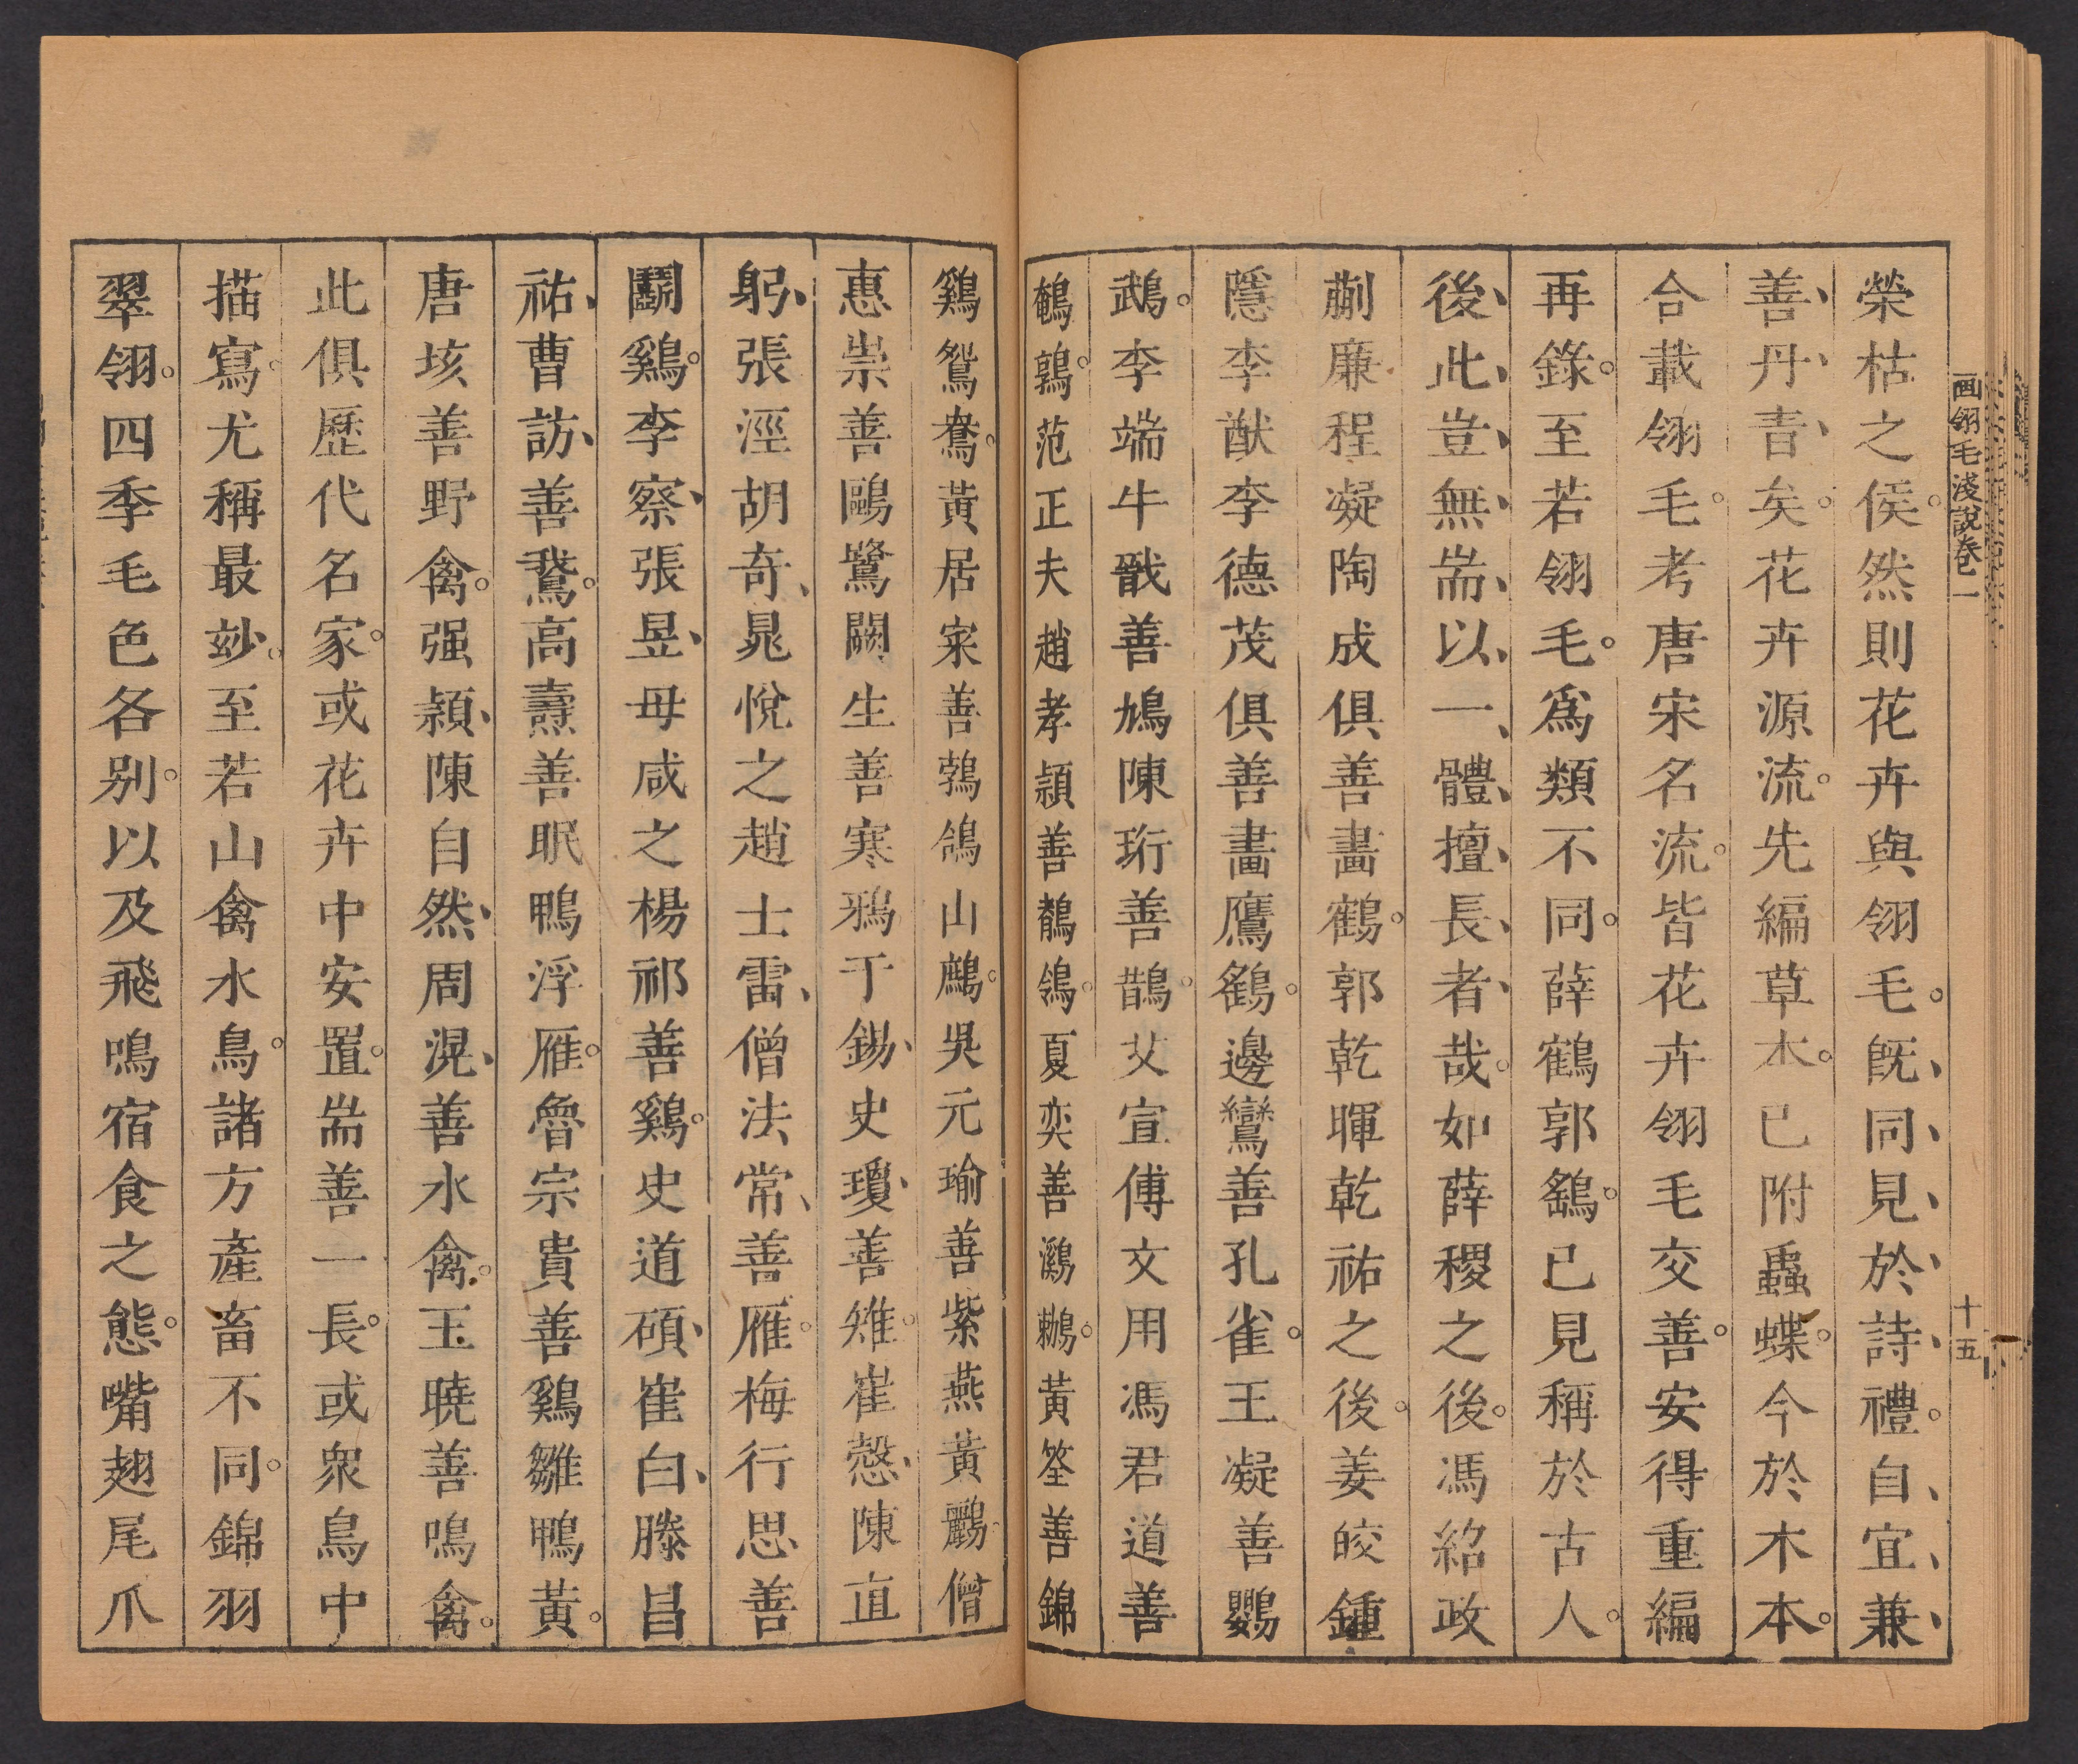 画翎毛淺說卷一
十五
榮枯之候然則花卉與翎毛既同見於詩禮自宜兼
善丹青矣花卉源流先編草木已附蟲蝶今於木本
合載翎毛考唐宋名流皆花卉翎毛交善安得重編
再錄至若翎毛爲類不同薛鶴郭鷂已見稱於古人
後此豈無耑以一體擅長者哉如薛稷之後馮紹政
蒯廉程凝陶成俱善畫鶴郭乾暉乾祐之後姜皎鍾
隱李猷李德茂俱善畫鷹鷂邊鸞善孔雀王凝善鸚
鵡李端牛戩善鳩陳珩善鵲艾宣傅文用馮君道善
鵪鶉范正夫趙孝頴善鶺鴒夏奕善鸂鶒黃筌善錦
鷄鴛鴦黃居寀善鵓鴿山鷓吳元瑜善紫燕黃鸝僧
惠崇善鷗鷺闕生善寒鴉于錫史瓊善雉崔慤陳直
躬張涇胡奇晁悅之趙士雷僧法常善雁梅行思善
鬬鷄李察張昱毋咸之楊祁善鷄史道碩崔白滕昌
祐曹訪善鵞高壽善眠鴨浮雁魯宗貴善鷄雛鴨黃
唐垓善野禽强頴陳自然周滉善水禽王曉善鳴禽
此俱歷代名家或花卉中安置耑善一長或衆鳥中
描寫尤稱最玅至若山禽水鳥諸方產畜不同錦羽
翠翎四季毛色各别以及飛鳴宿食之態嘴翅尾爪